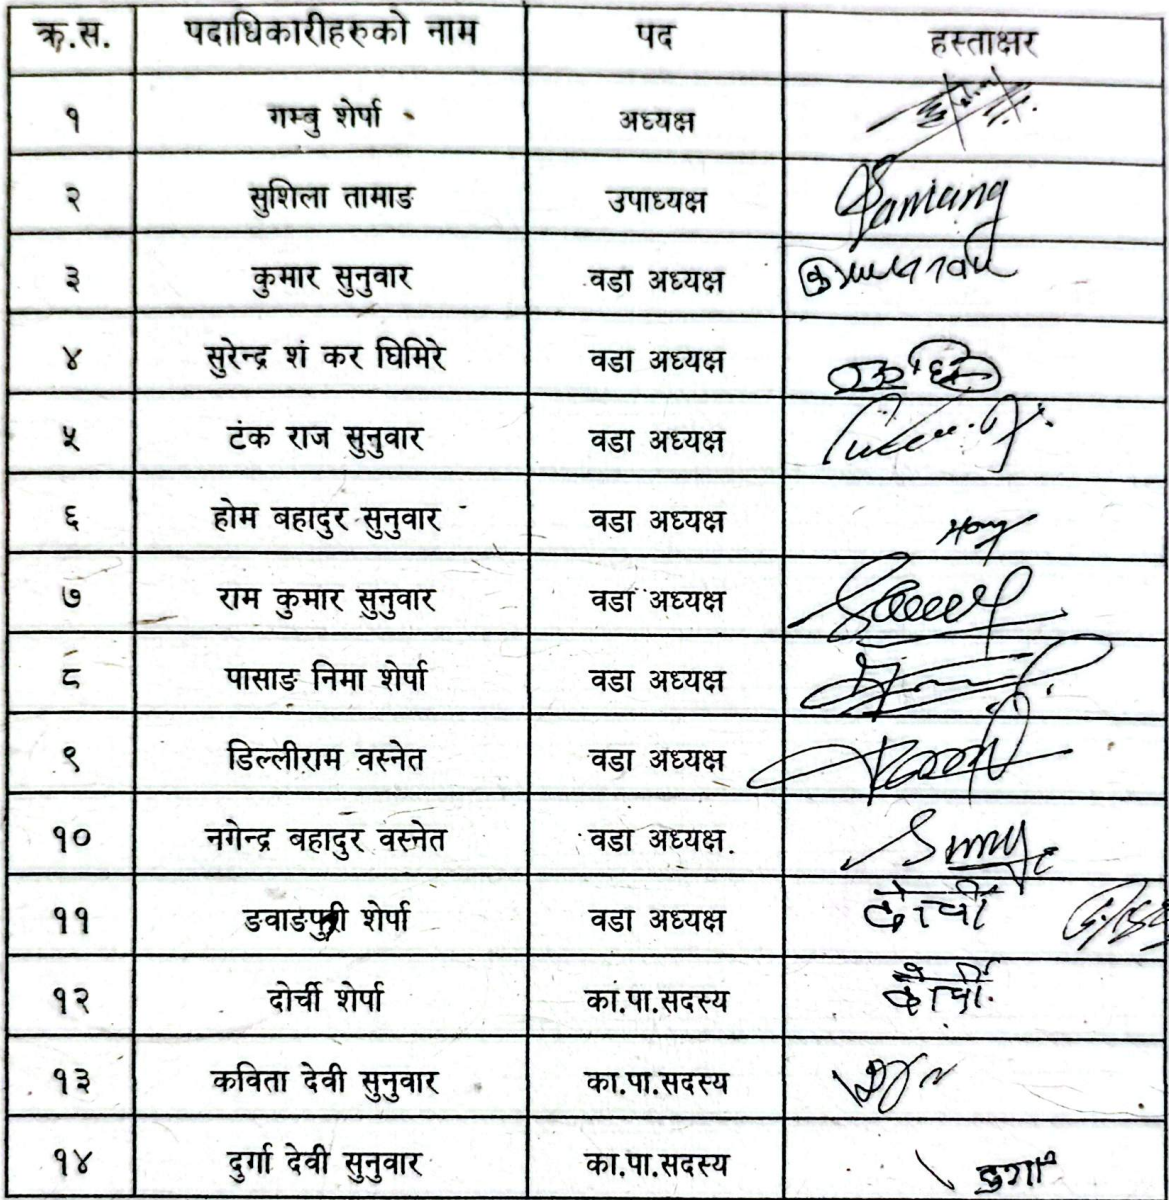 क्र.स. पदाधिकारीहरुको नाम पद हस्ताक्षर
१ गम्बु शेर्पा अध्यक्ष
२ सुशिला तामाङ उपाध्यक्ष Stamang
३ कुमार सुनुवार वडा अध्यक्ष
४ सुरेन्द्र शं कर घिमिरे वडा अध्यक्ष
५ टंक राज सुनुवार वडा अध्यक्ष
६ होम बहादुर सुनुवार वडा अध्यक्ष
७ राम कुमार सुनुवार वडा अध्यक्ष
८ पासाङ निमा शेर्पा वडा अध्यक्ष
९ डिल्लीराम वस्नेत वडा अध्यक्ष
१० नगेन्द्र बहादुर वस्नेत वडा अध्यक्ष.
११ ङवाङपुरी शेर्पा वडा अध्यक्ष दोर्ची
१२ दोर्ची शेर्पा का.पा.सदस्य दोर्ची
१३ कविता देवी सुनुवार का.पा.सदस्य
१४ दुर्गा देवी सुनुवार का.पा.सदस्य दुर्गा